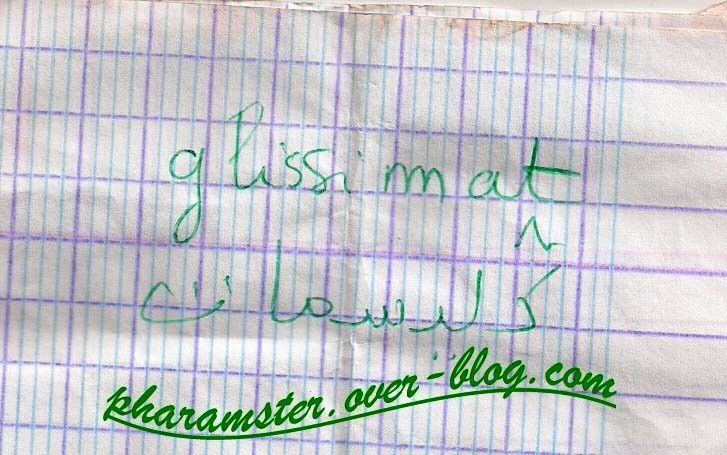 glissimat
ڭليسمات
kharamster.over-blog.com